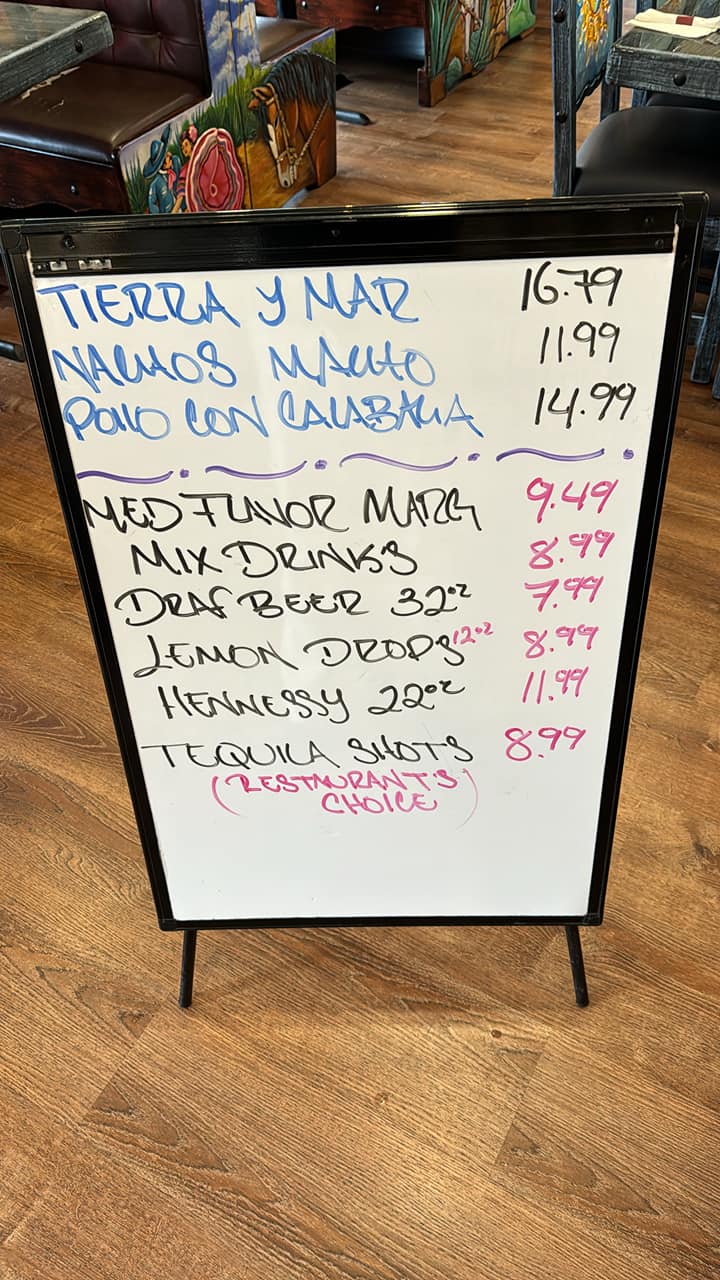 TIERRA Y MAR 16.79
NACHOS MACHO 11.99
POLLO CON CALABAZA 14.99
MED FLAVOR MARG 9.49
MIX DRINKS 8.99
DRAF BEER 32oz 7.99
LEMON DROPS 12oz 8.99
HENNESSY 22oz 11.99
TEQUILA SHOTS 8.99
(RESTAURANT'S
CHOICE)